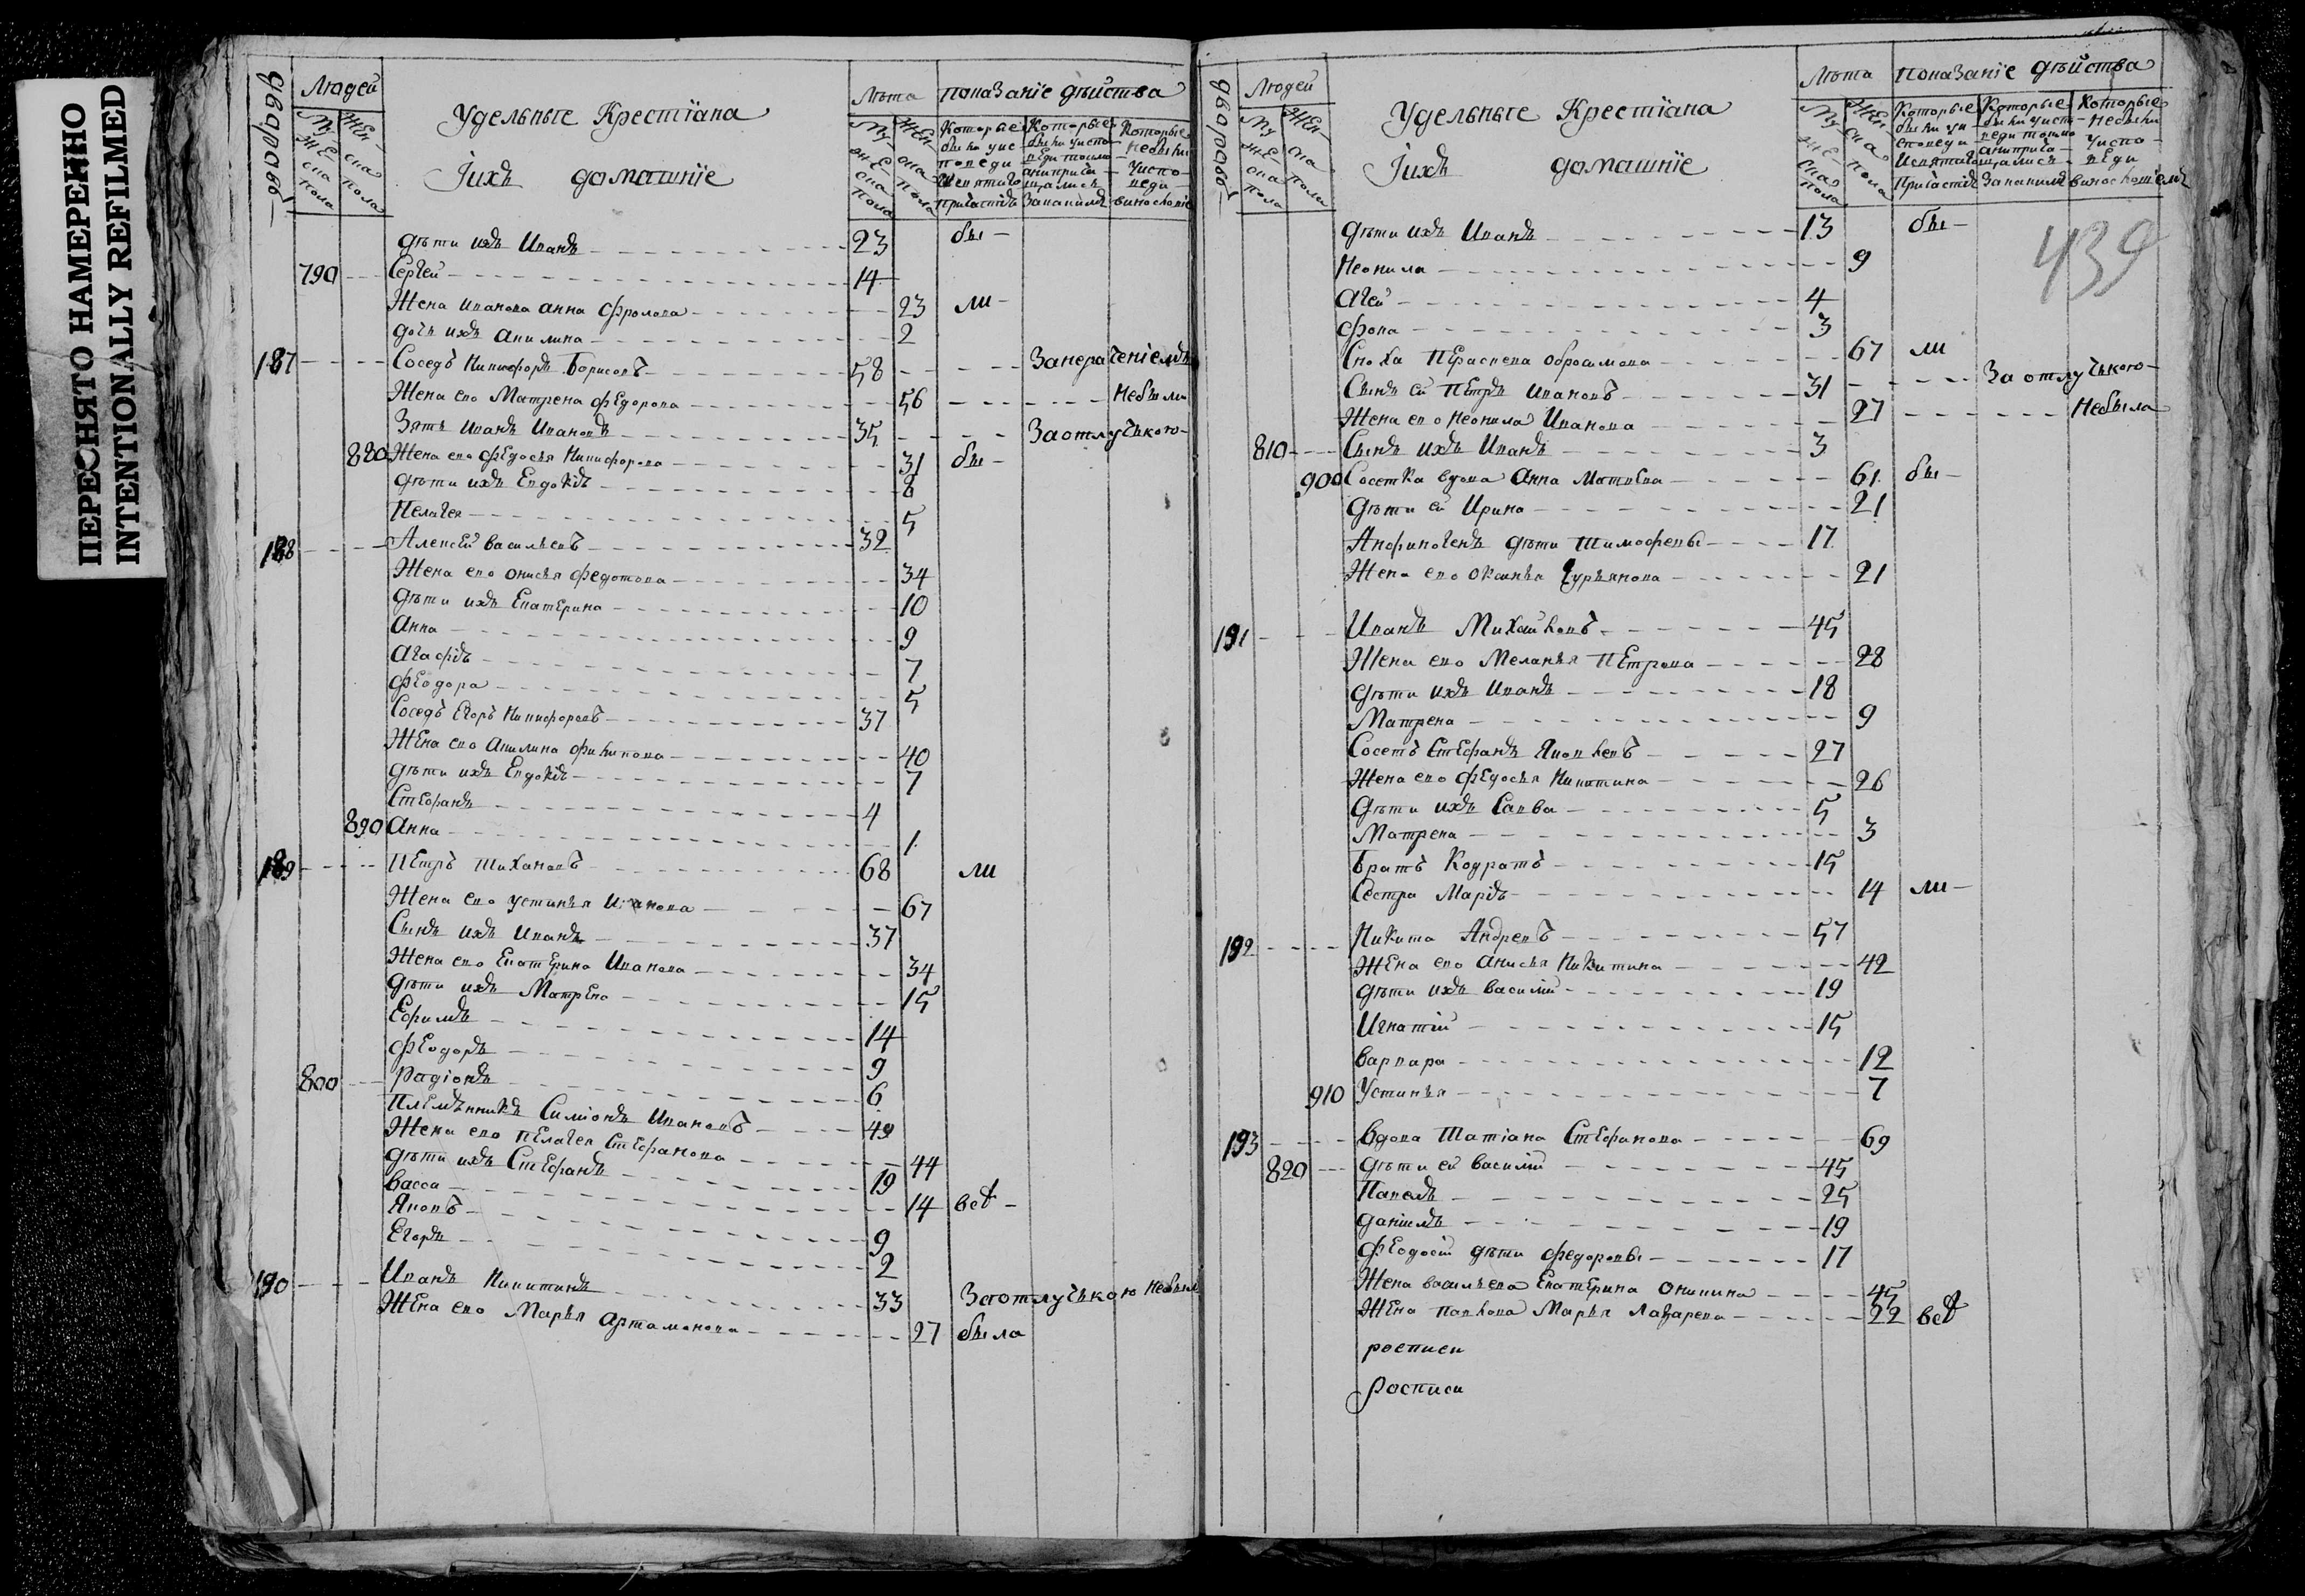 ПЕРЕСНЯТО НАМЕРЕННО
INTENTIONALLY REFILMED
Людей
Удельные Крестїана
Іихъ домашнїе
Лѣта
показанїе дѣйства
дѣти ихъ Иванъ 23 бы-
790 Сергей 14
Жена иванова анна Фролова 23 ли-
дочь ихъ акилина 2
187 Соседъ Никифоръ Борисовъ 58 Занерачениемъ
Жена его Матрена федорова 56 Небыли
Зять Иванъ Ивановъ 35 Заотлучькою-
880 Жена его федосья Никифорова 31 бы-
дѣти ихъ Евдокіѣ 8
Пелагея 5
188 Алексей васильевъ 32
Жена его онисья федотова 34
дѣти ихъ Екатерина 10
Анна 9
Агафіѣ 7
феодора 5
Соседъ Егоръ Никифоровъ 37
Жена его Акилина филипова 40
дѣти ихъ Евдокіѣ 7
Стефанъ 4
890 Анна 1
189 Петръ Тихановъ 68 ли
Жена его устинья Иванова 67
Сынъ ихъ Иванъ 37
Жена его Екатерина Иванова 34
дѣти ихъ Матрена 15
Ефимъ 14
феодоръ 9
800 Радіонъ 6
Племѣнникъ Симіонъ Ивановъ 49
Жена его Пелагея Стефанова 44
дѣти ихъ Стефанъ 19
васса 14 всѣ-
Яковъ 9
Егоръ 2
190 Иванъ Никитинъ 33 Заотлучькою небыл
Жена его Марья Артамонова 27 была
Людей
Удельные Крестїана
Іихъ домашнїе
Лѣта
показанїе дѣйства
439
дѣти ихъ Иванъ 13 бы-
Неонила 9
Агей 4
фома 3
Сноха Перасковья оброимова 67 ли
Сынъ ей Петръ Ивановъ 31 За отлучькою-
Жена его Неонила Иванова 27 Небыла
810 Сынъ ихъ Иванъ 3
900 Сосетка вдова Анна Матвева 61 бы-
дѣти ей Ирина 21
Анфиногенъ дѣти Тимофевы 17
Жена его Оксинья Гурьянова 21
191 Иванъ Михайловъ 45
Жена его Меланья Петрова 28
дѣти ихъ Иванъ 18
Матрена 9
Сосетъ Стефанъ Яковлевъ 27
Жена его федосья Никитина 26
дѣти ихъ Савва 5
Матрена 3
Братъ Кодратъ 15
Сестра Маріѣ 14 ли-
192 Никита Андревъ 57
Жена его Анисья Никитина 42
дѣти ихъ василій 19
Игнатій 15
варвара 12
910 Устинья 7
193 вдова Татіана Стефанова 69
820 дѣти ей василій 45
Павелъ 25
данилъ 19
феодосій дѣти федоровы 17
Жена васильева Екатерина Оникина 45
Жена павлова Марья Лазарева 22 всѣ
росписи
росписи